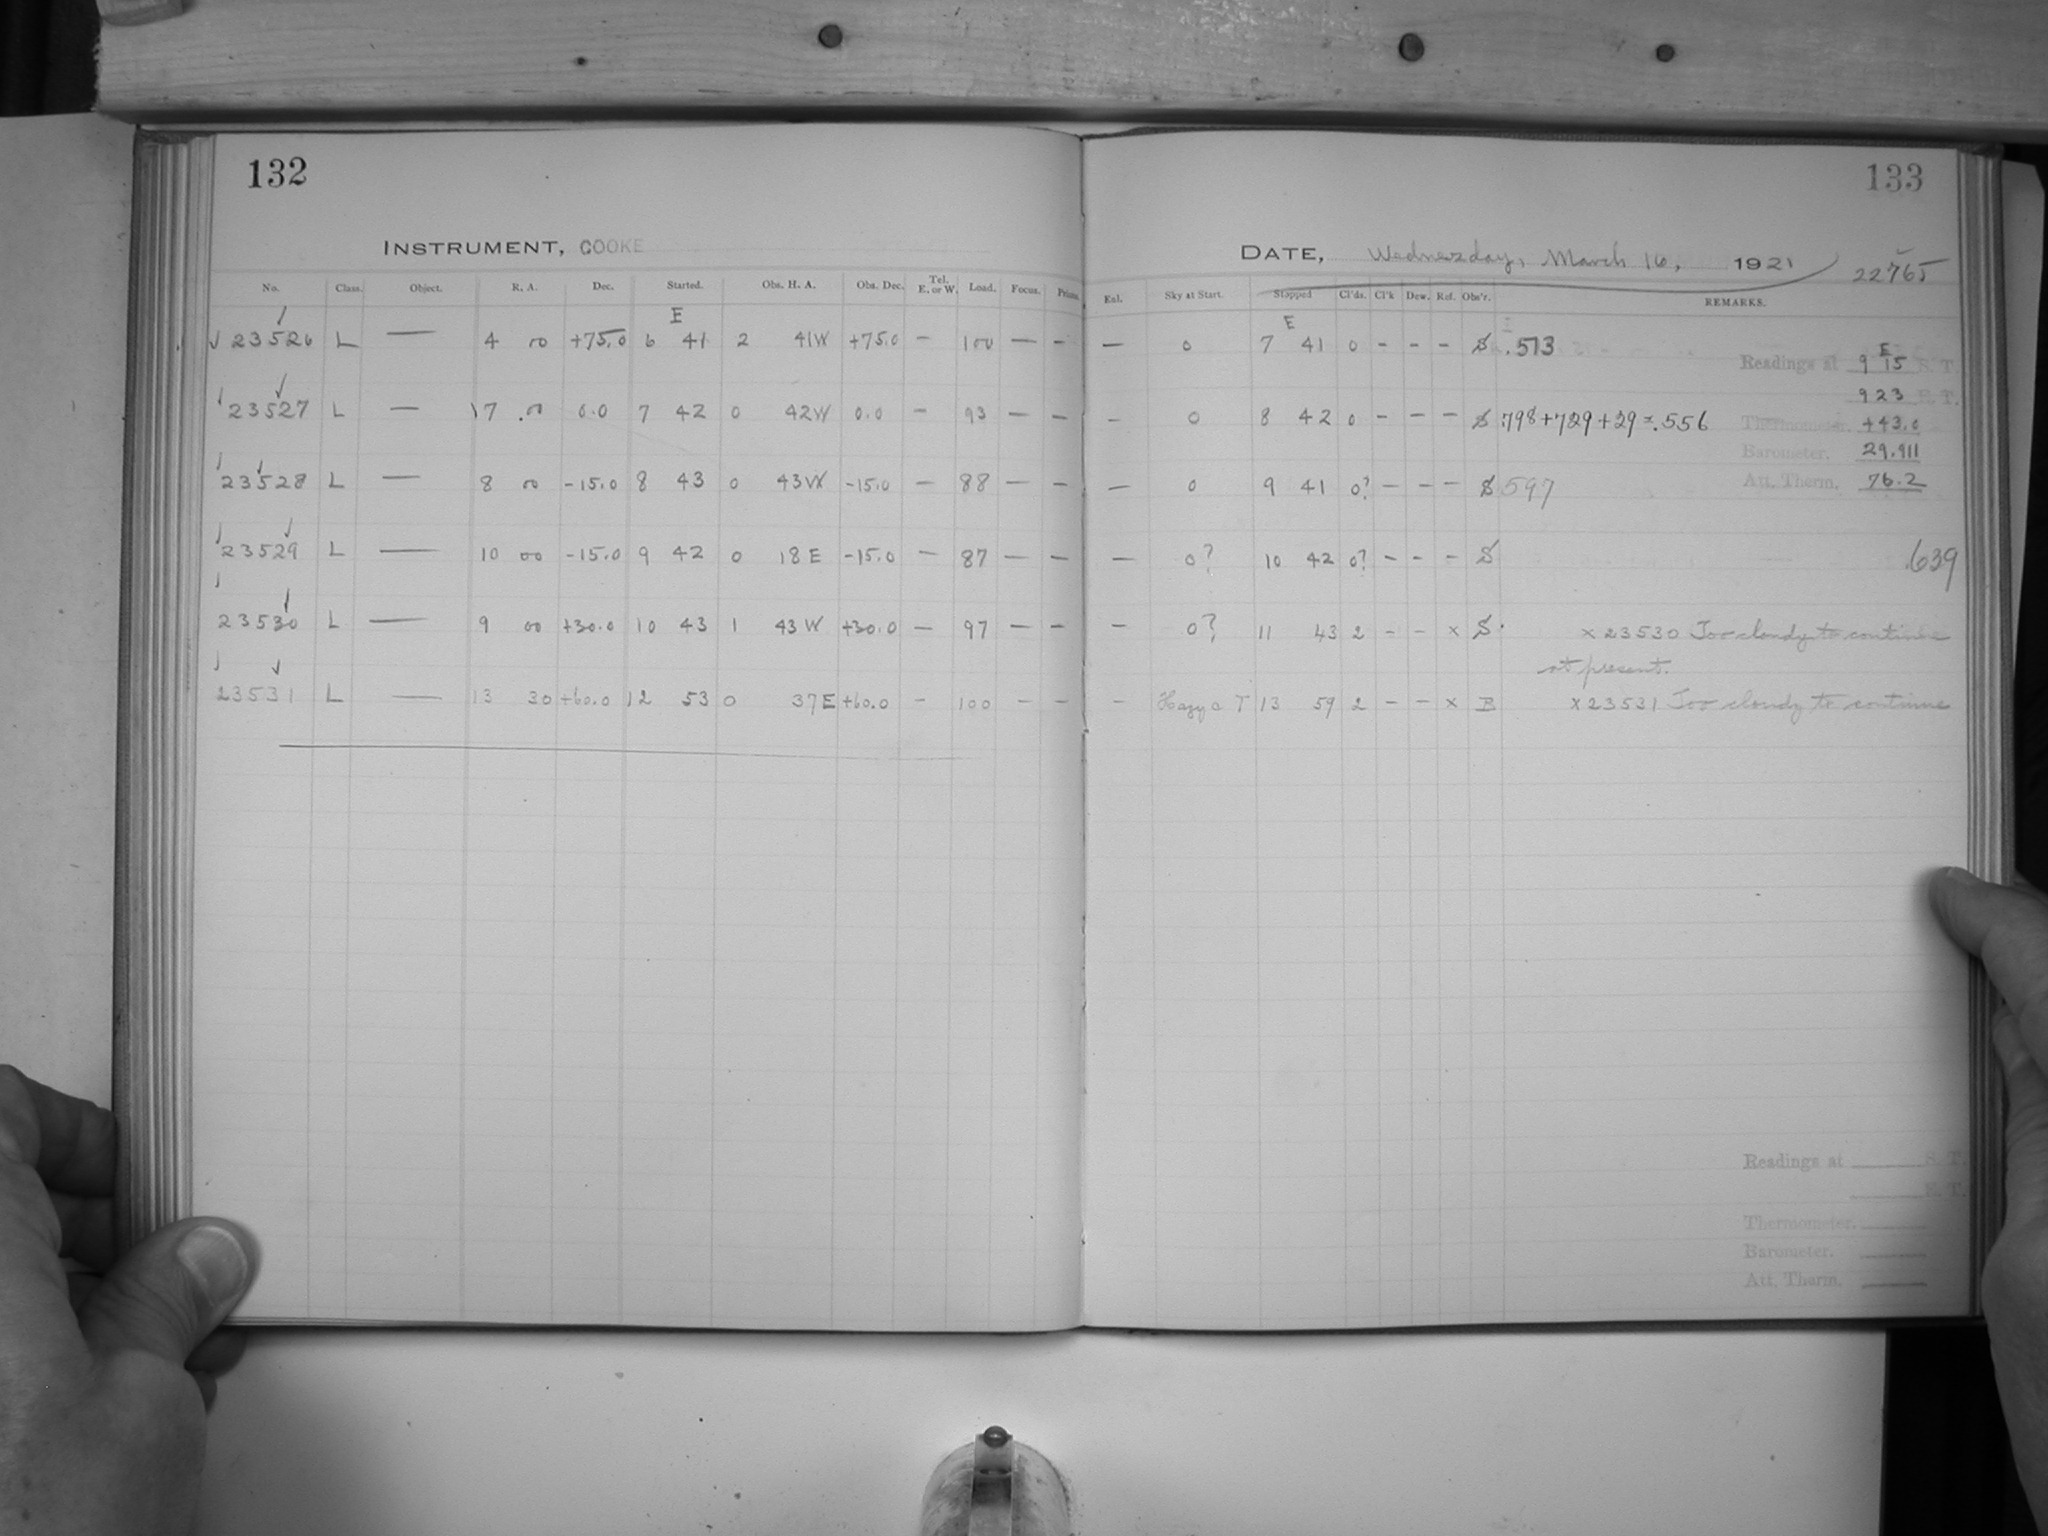 132
133
INSTRUMENT, COOKE
DATE, Wednesday, March 16, 1921
22765
No. Class. Object. R. A. Dec. Started. Obs. H. A. Obs. Dec. Tel. E. or W. Load. Focus. Prisms
Enl. Sky at Start. Stopped Cl'ds. Cl'k Dew. Ref. Obs'r. REMARKS.
E
E
23526 L — 4 00 +75.0 6 41 2 41W +75.0 — 100 — — — 0 7 41 0 - - - S .513
Readings at 9 15 S. T.
E
923 E. T.
23527 L — 7 00 0.0 7 42 0 42W 0.0 — 93 — — - 0 8 42 0 - - - S .798+729+29=.556
Thermometer. +43.0
Barometer. 29.911
23528 L — 8 00 -15.0 8 43 0 43W -15.0 — 88 — — — 0 9 41 0? - - - S 597
Att. Therm. 76.2
23529 L — 10 00 -15.0 9 42 0 18 E -15.0 — 87 — — — 0? 10 42 0? - - - S .639
23530 L — 9 00 +30.0 10 43 1 43 W +30.0 — 97 — — — 0? 11 43 2 - - x S. x 23530 Too cloudy to continue
at present.
23531 L — 13 30 +60.0 12 53 0 37 E +60.0 - 100 - - - Hazy 13 59 2 - - x B x 23531 Too cloudy to continue
Readings at S. T.
E. T.
Thermometer.
Barometer.
Att. Therm.